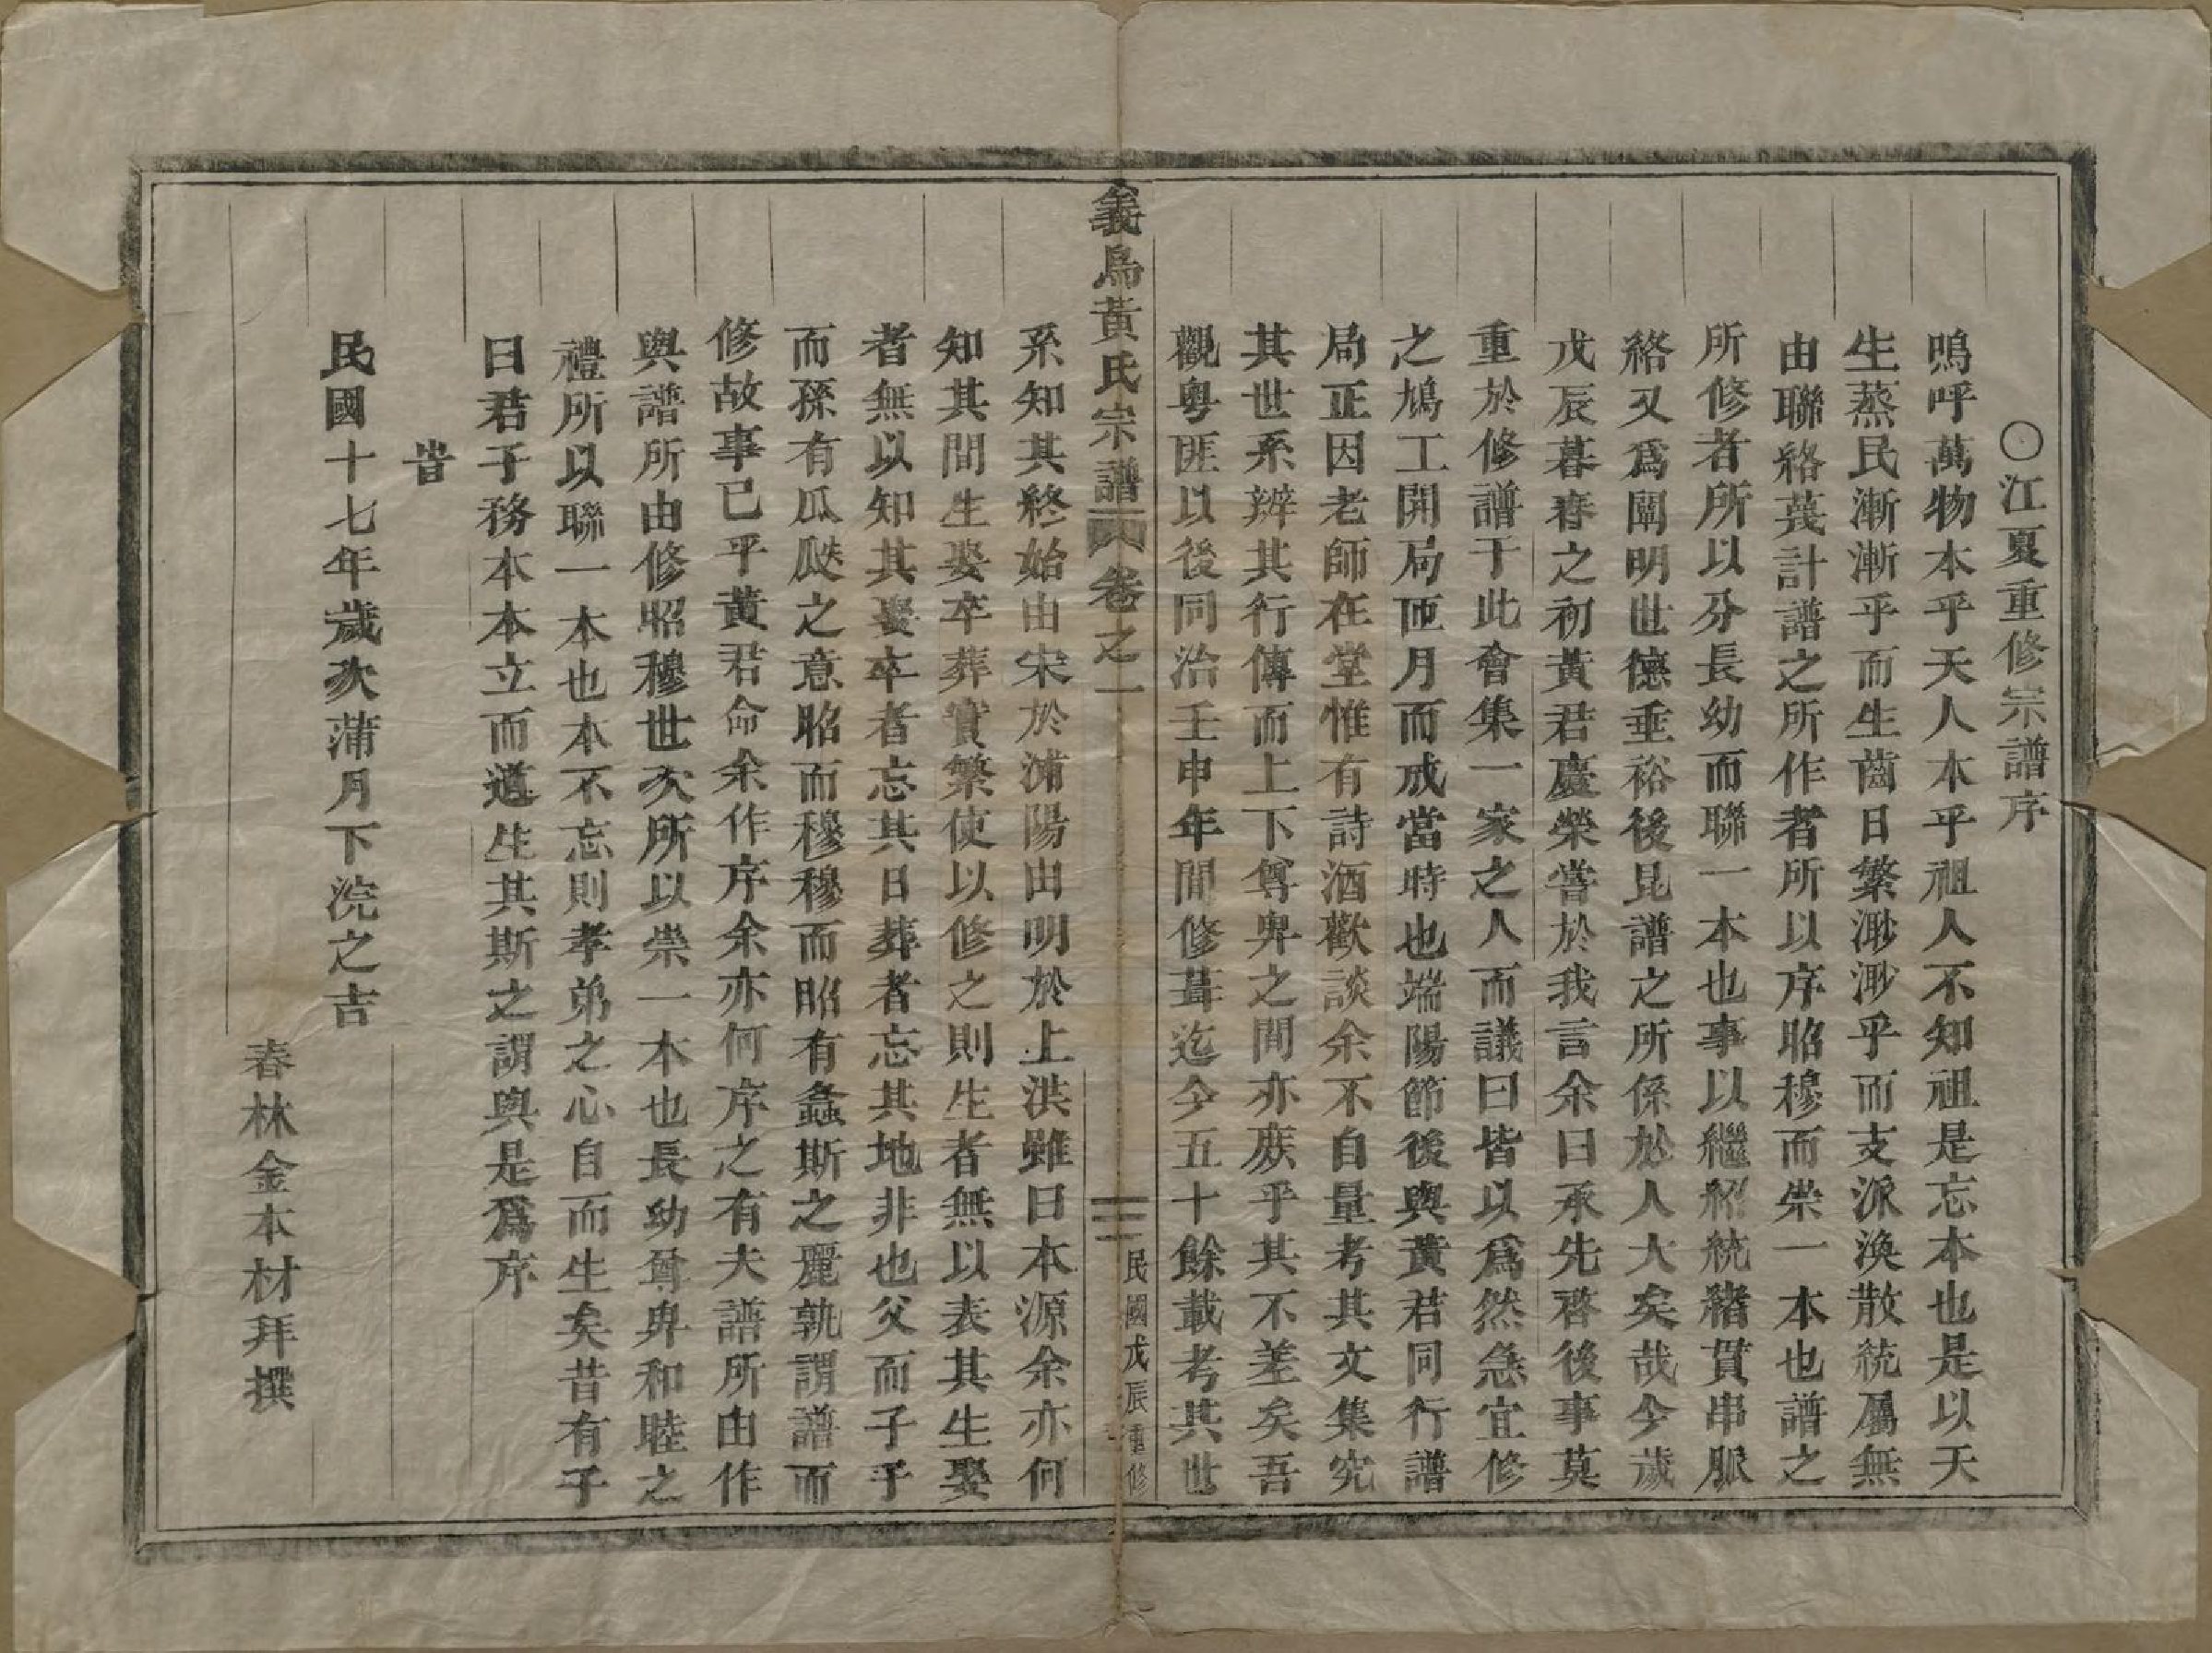 〇江夏重修宗譜序
嗚呼萬物本乎天人本乎祖人不知祖是忘本也是以天
生蒸民漸漸乎而生齒日繁渺渺乎而支派渙散統屬無
由聯絡莪計譜之所作者所以序昭穆而崇一本也譜之
所修者所以分長幼而聯一本也事以繼紹統緒貫串脈
絡又爲闡明世德垂裕後昆譜之所係於人大矣哉今歲
戊辰暮春之初黃君慶榮嘗於我言余曰承先啓後事莫
重於修譜于此會集一家之人而議曰皆以爲然急宜修
之鳩工開局匝月而成當時也端陽節後與黃君同行譜
局正因老師在堂惟有詩酒歡談余不自量考其文集究
其世系辨其行傳而上下尊卑之間亦庻乎其不差矣吾
觀粵匪以後同治壬申年間修葺迄今五十餘載考其世
義烏黃氏宗譜 卷之一 三 民國戊辰重修
系知其終始由宋於浦陽由明於上洪雖曰本源余亦何
知其間生娶卒葬實繁使以修之則生者無以表其生娶
者無以知其娶卒者忘其日葬者忘其地非也父而子子
而孫有瓜瓞之意昭而穆穆而昭有螽斯之麗孰謂譜而
修故事已乎黃君命余作序余亦何序之有夫譜所由作
與譜所由修昭穆世次所以崇一本也長幼尊卑和睦之
禮所以聯一本也本不忘則孝弟之心自而生矣昔有子
曰君子務本本立而道生其斯之謂與是爲序
旹
民國十七年歲次蒲月下浣之吉
春林金本材拜撰